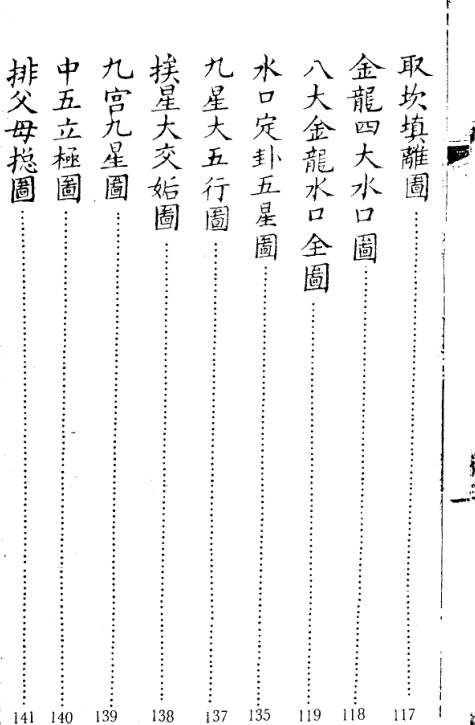 取坎填離圖 117
金龍四大水口圖 118
八大金龍水口全圖 119
水口定卦五星圖 135
九星大五行圖 137
挨星大交姤圖 138
九宮九星圖 139
中五立極圖 140
排父母搃圖 141